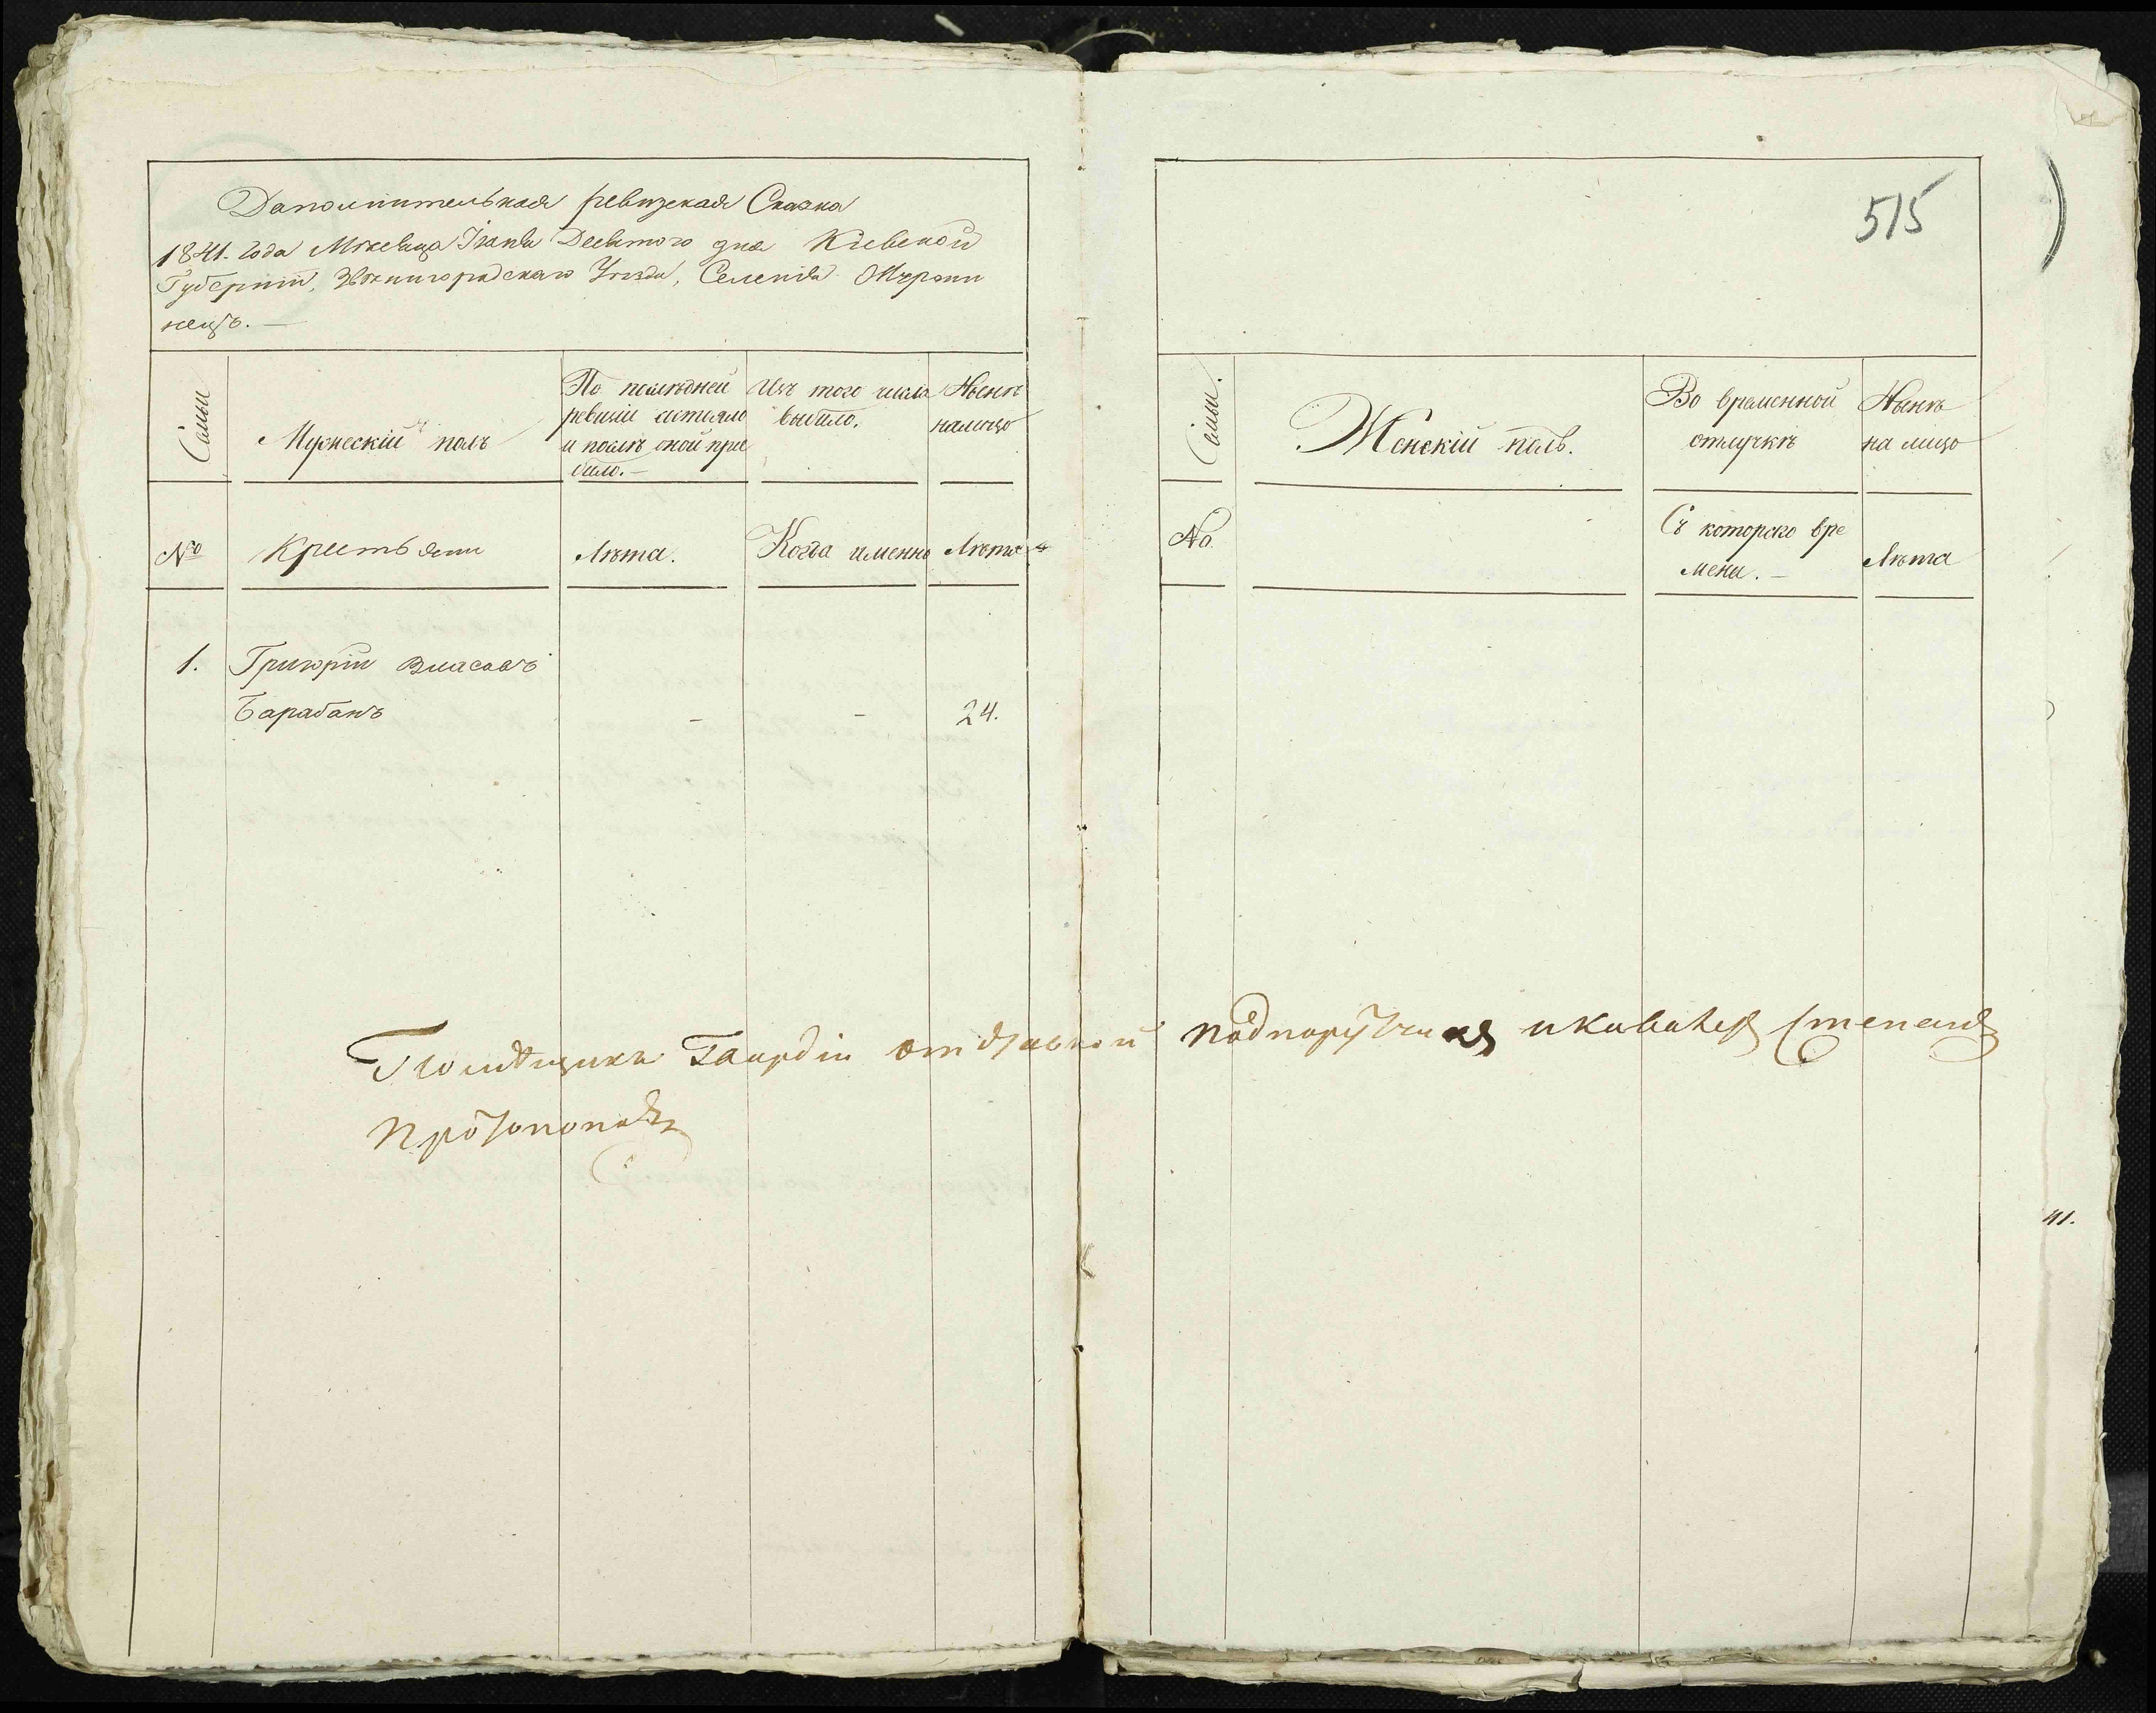 Дополнительная ревизская Сказка
1841. года Месяца Іюня Девятого дня Кіевской
Губерніи, Звенигородскаго Уезда, Селенія
нецъ. —
Семьи
Мужескій полъ
По последней
ревизіи состояло
и после оной при
было. —
Изъ того числа
выбыло.
Ныне
налицо
№
Крестьяни
Лѣта.
Когда именно
Лѣта
1.
Григорій Власовъ
Барабанъ
-
-
24.
515
Семьи.
Женскій полъ.
Во временной
отлучкѣ
Нынѣ
на лицо
№
Съ которого вре
мени. —
Лѣта
Помѣщикъ Гвардіи отставной подпоручикъ икавалеръ Степанъ
Протопоповъ
41.